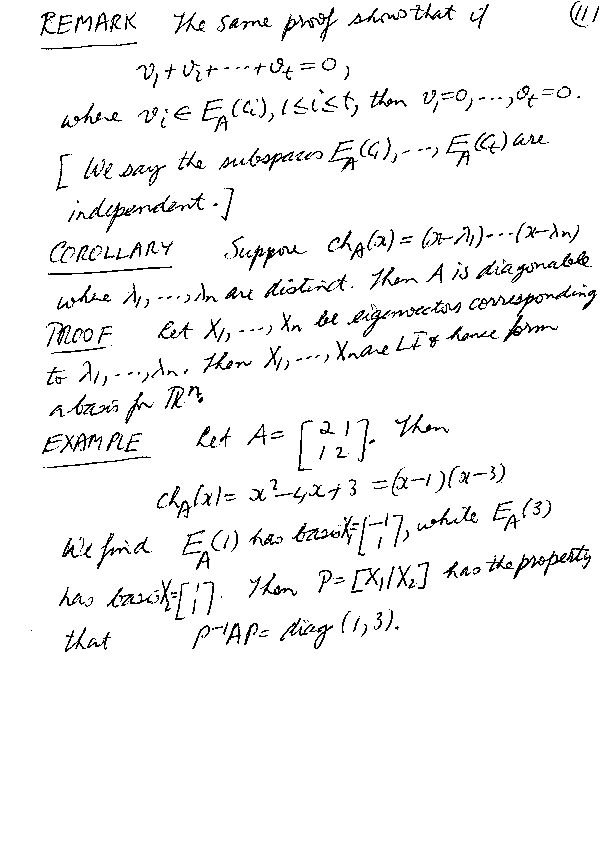 REMARK The same proof shows that if (111
v₁ + v₂ + ··· + vₜ = 0,
where vᵢ ∈ E_A(cᵢ), 1≤i≤t, then v₁=0, ..., vₜ=0.
[We say the subspaces E_A(c₁), ..., E_A(cₜ) are
independent.]
COROLLARY Suppose ch_A(x) = (x-λ₁)···(x-λn)
where λ₁, ..., λn are distinct. Then A is diagonable
PROOF Let X₁, ..., Xn be eigenvectors corresponding
to λ₁, ..., λn. Then X₁, ..., Xn are LI & hence form
a basis for ℝⁿ.
EXAMPLE Let A = [2 1; 1 2]. Then
ch_A(x) = x²-4x+3 = (x-1)(x-3)
We find E_A(1) has basis X₁=[-1; 1], while E_A(3)
has basis X₂=[1; 1]. Then P = [X₁|X₂] has the property
that P⁻¹AP = diag (1,3).